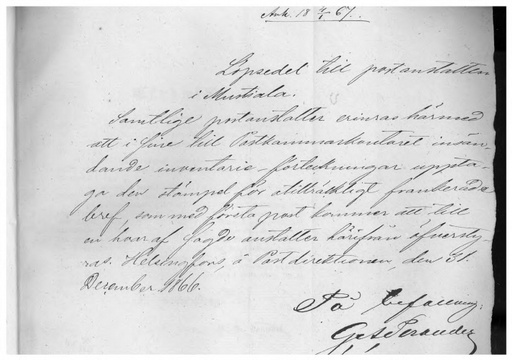 Ank. 18 7/1 67.
Löpsedel till postanstalten
i Mustiala.
Samtlige postanstalter erinras härmed
att i före till Postkammarkontoret insän-
dande inventarie-förteckningar uppta-
ga den stämpel för otillräckligt frankerade
bref, som med första post kommer att till
en hvar af sagde anstalter härifrån öfversty-
ras. Helsingfors, å Postdirektionen, den 31.
December 1866.
På befallning: